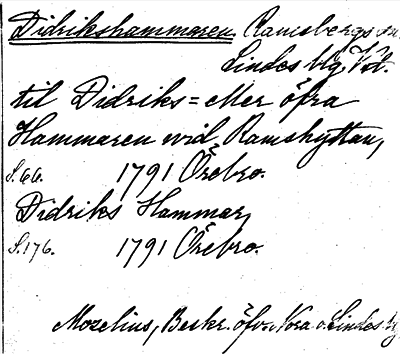 Didrikshammaren. Ramsbergs sn.
Lindes bg. Vstl.
til Didriks= eller öfra
Hammaren wid Ramshyttan,
S. 66. 1791 Örebro.
Didriks Hammar,
S. 176. 1791 Örebro.
Mozelius, Beskr. öfver Nora o. Lindes bg